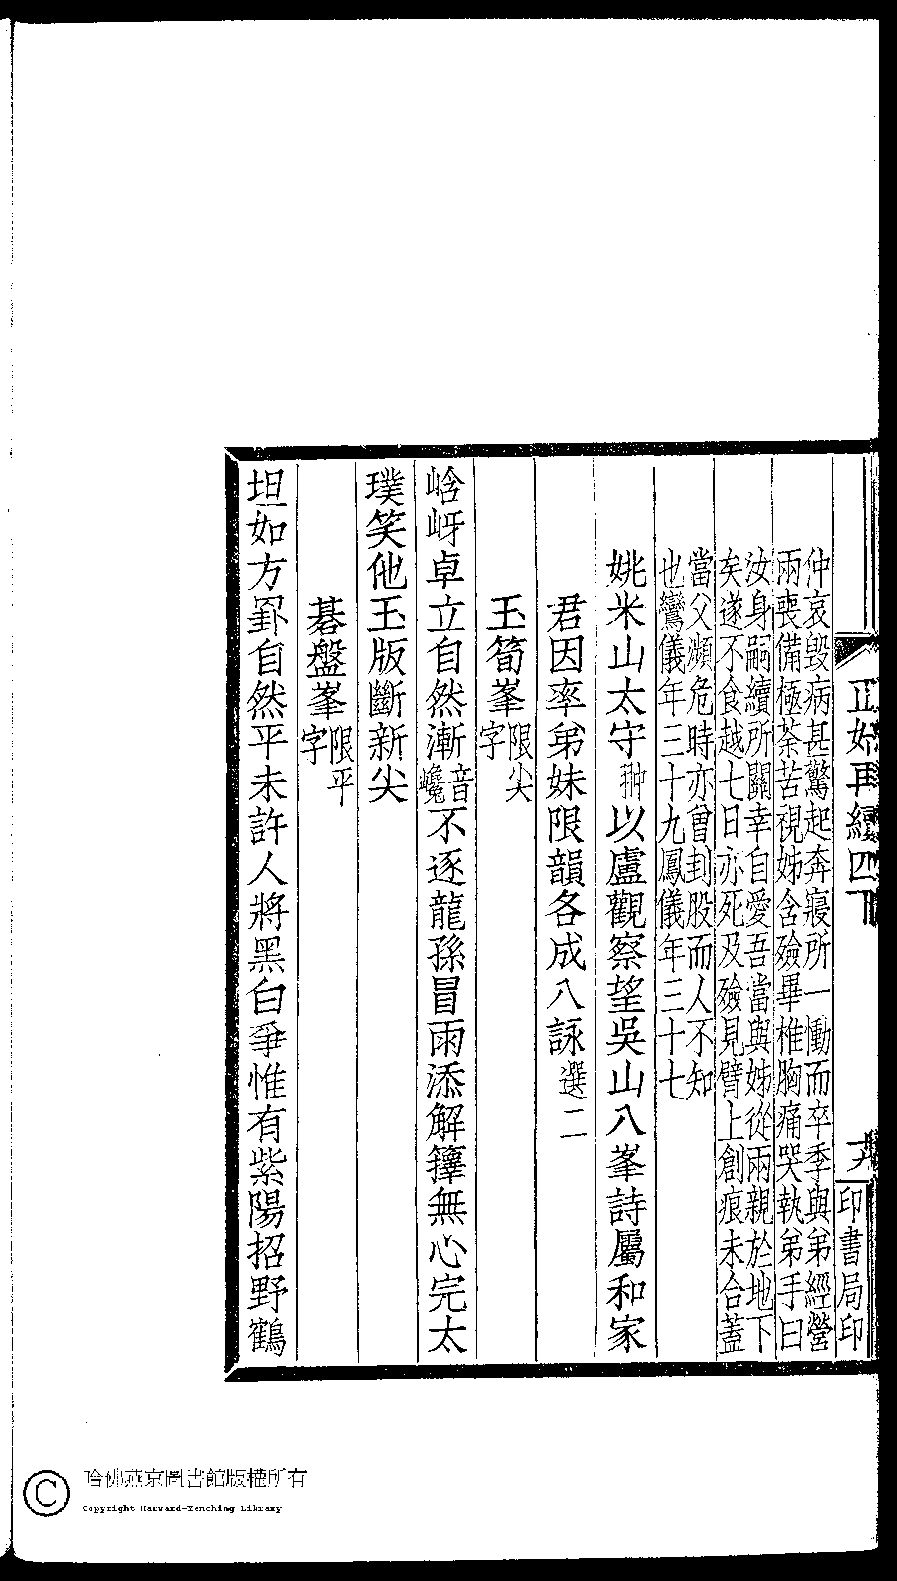 正始再續四下
印書局印
仲哀毀病甚驚起奔寢所一慟而卒季與弟經營
兩喪備極荼苦視姊含殮畢椎胸痛哭執弟手曰
汝身嗣續所關幸自愛吾當與姊從兩親於地下
矣遂不食越七日亦死及殮見臂上創痕未合蓋
當父瀕危時亦曾刲股而人不知
也鸞儀年三十九鳳儀年三十七
姚米山太守翀以盧觀察望吳山八峯詩屬和家
君因率弟妹限韻各成八詠選二
玉筍峯限尖字
峆岈卓立自然漸音巉不逐龍孫冒雨添解籜無心完太
璞笑他玉版斷新尖
碁盤峯限平字
坦如方罫自然平未許人將黑白爭惟有紫陽招野鶴
哈佛燕京圖書館版權所有
Copyright Harvard-Yenching Library